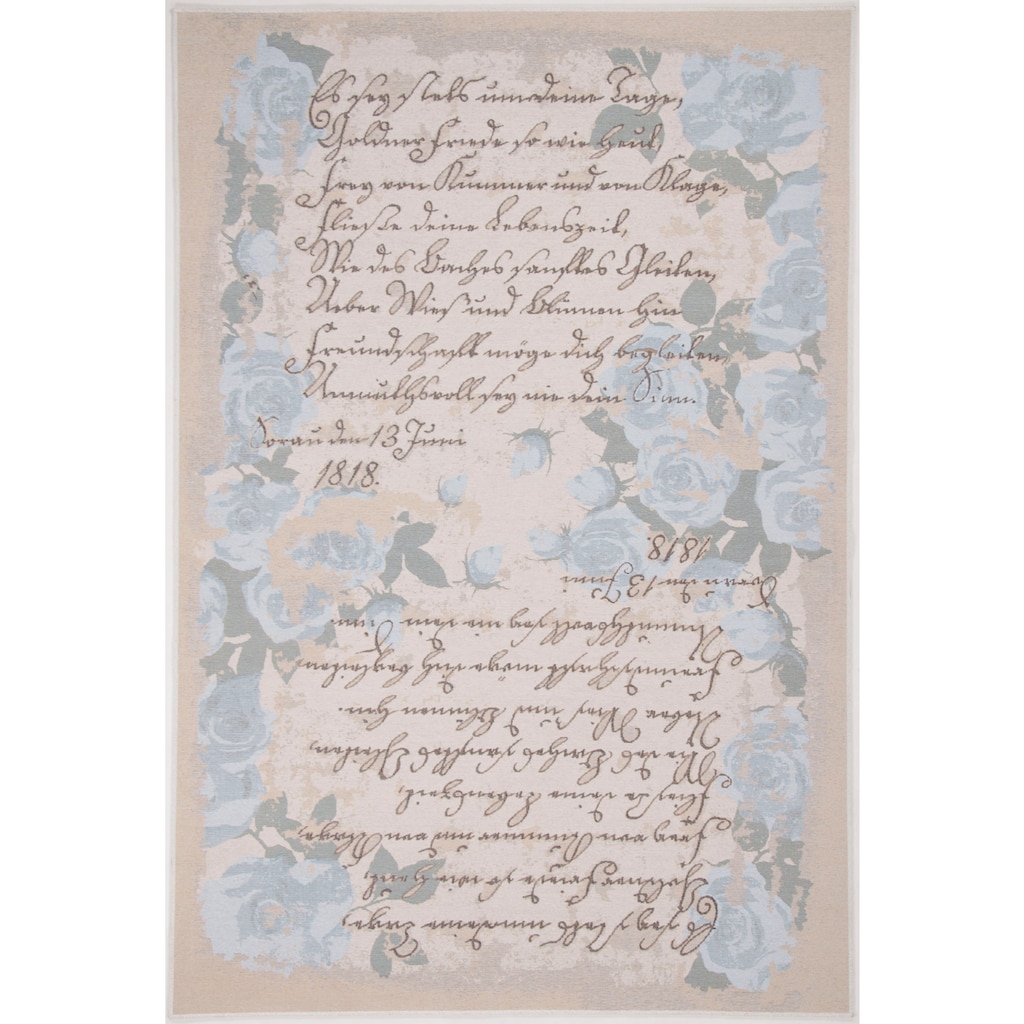 Es sey stets um deine Tage,
Goldner Friede so wie heut,
Frey von Kummer und von Klage,
Fließe deine Lebenszeit,
Wie des Baches sanftes Gleiten,
Ueber Wies' und Blumen hin
Freundschaft möge dich begleiten,
Anmuthsvoll sey nie dein Sinn.
Sorau den 13 Juni
1818.
1818.
Sorau den 13 Juni
Anmuthsvoll sey nie dein Sinn.
Freundschaft möge dich begleiten
Ueber Wies' und Blumen hin.
Wie des Baches sanftes Gleiten,
Fließe deine Lebenszeit,
Frey von Kummer und von Klage,
Goldner Friede so wie heut,
Es sey stets um deine Tage,